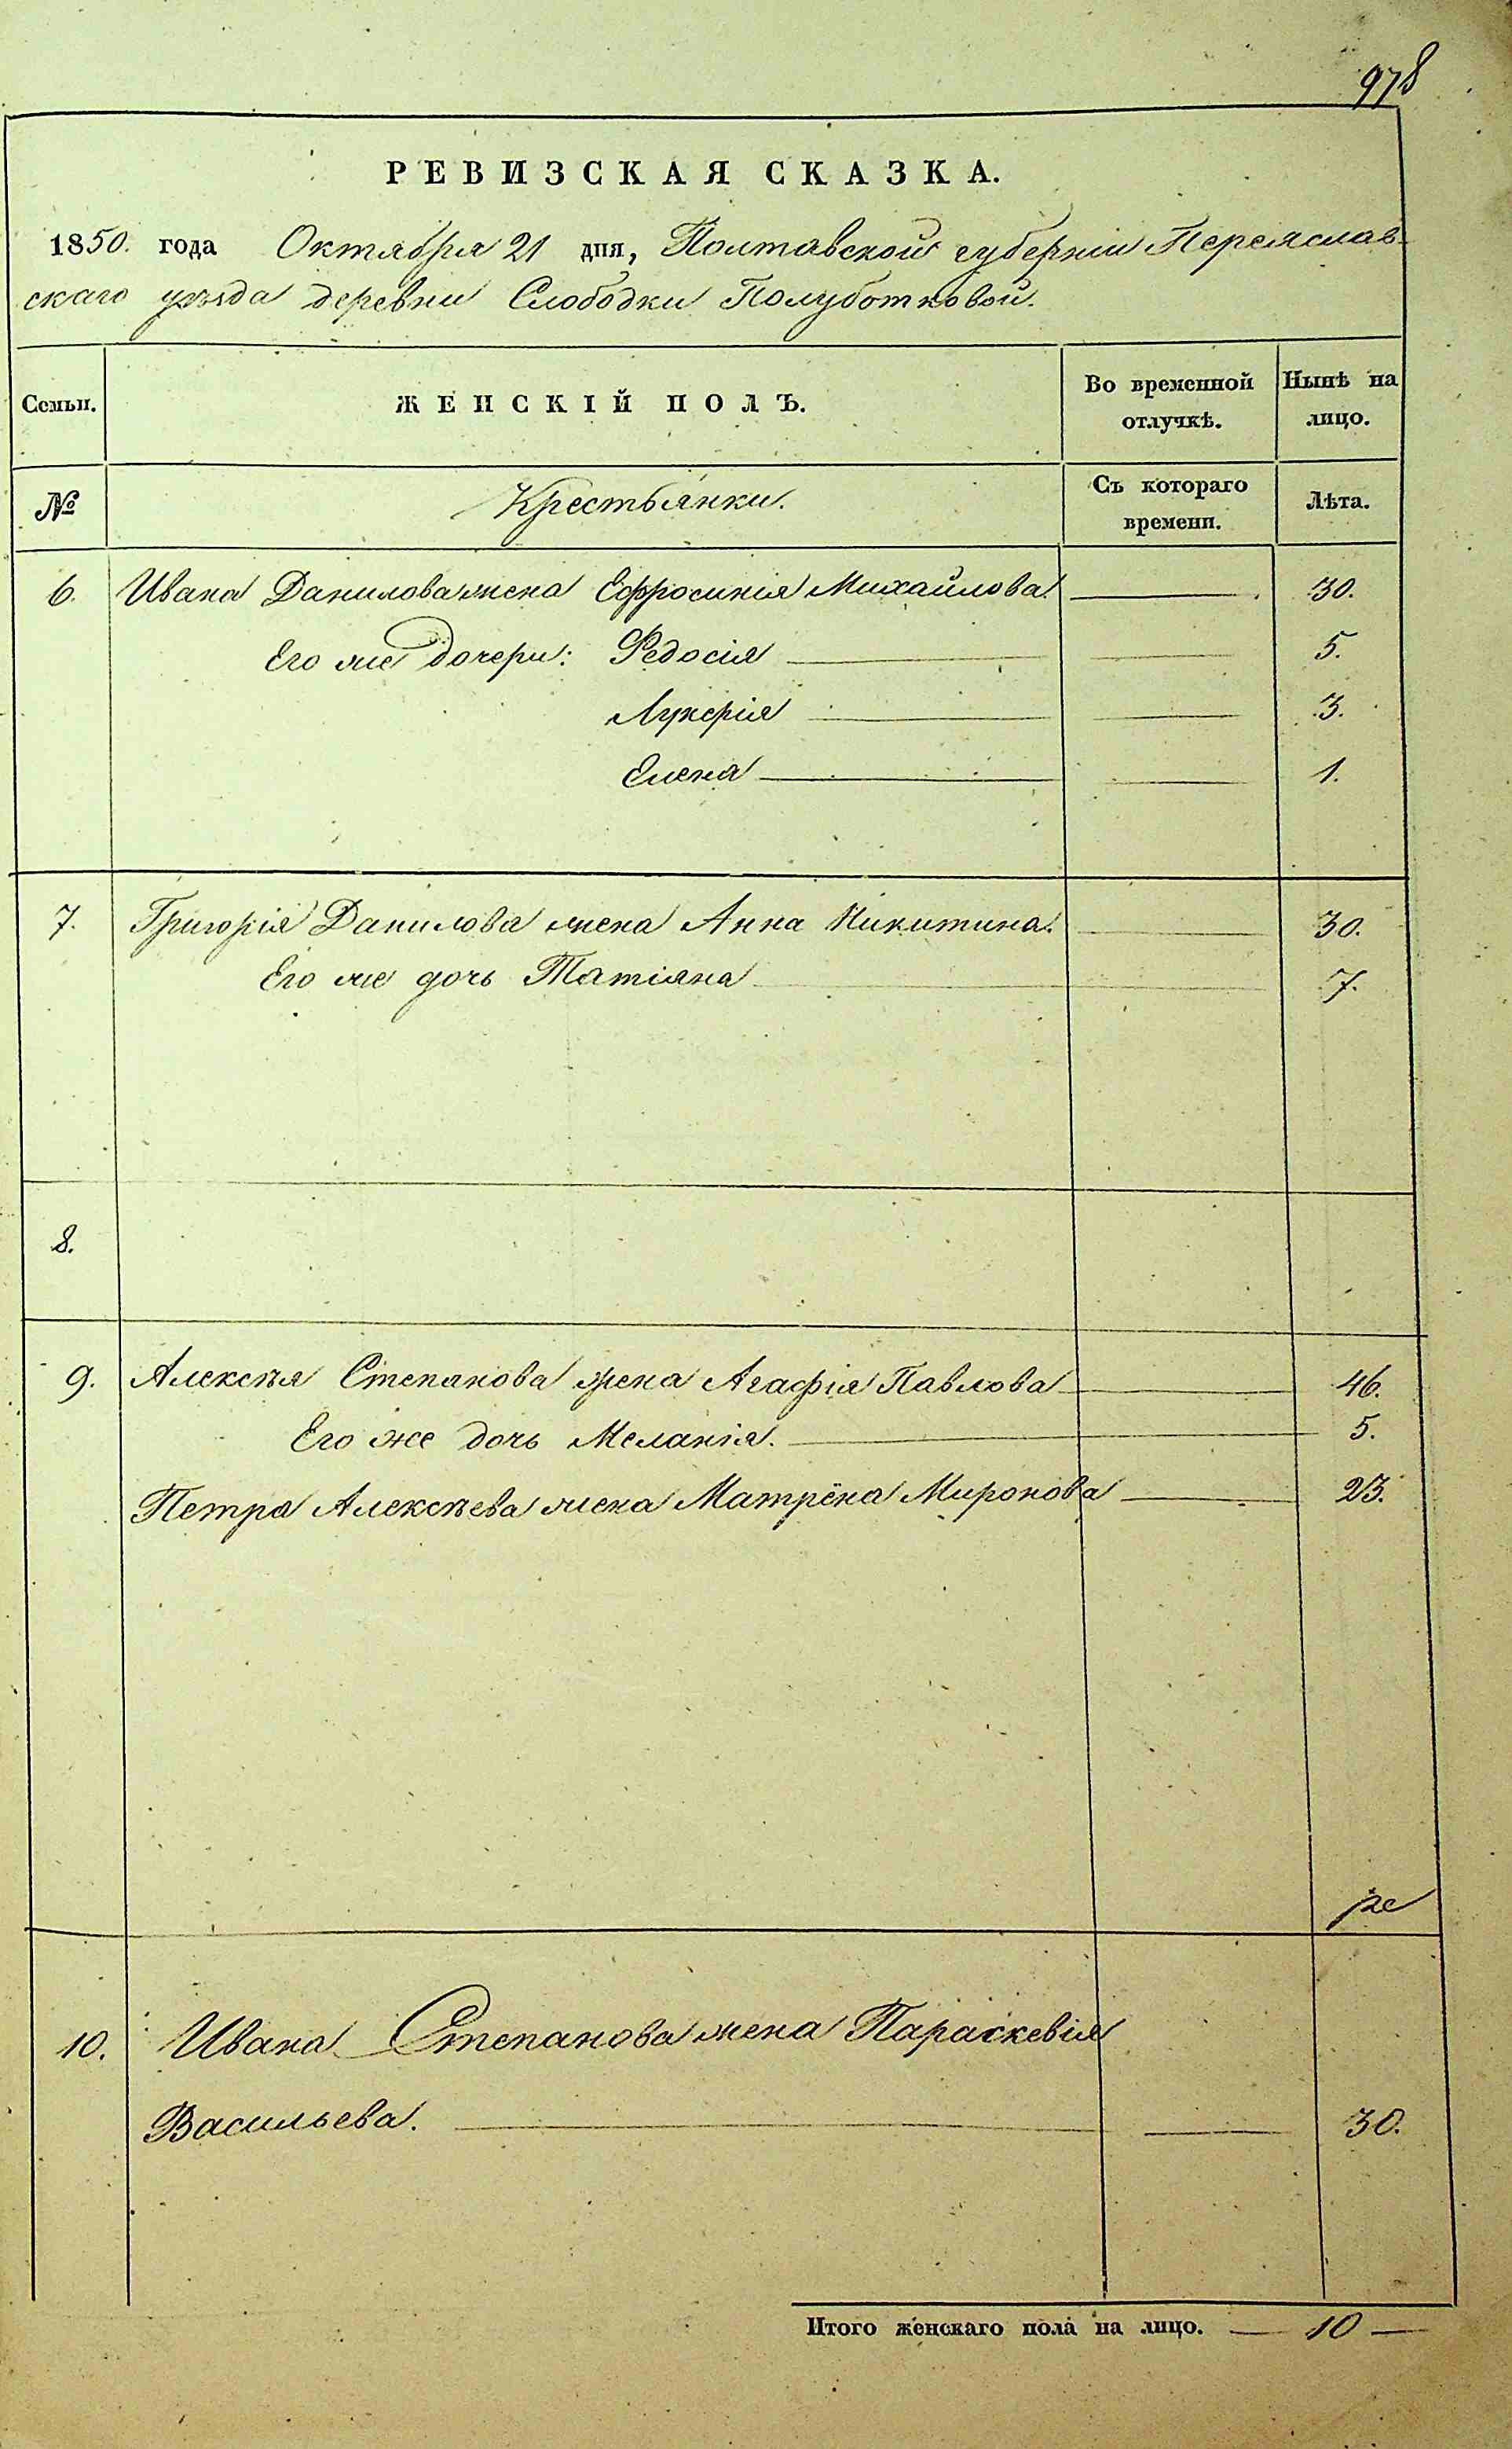 978
РЕВИЗСКАЯ СКАЗКА.
1850. года Октября 21 дня, Полтавской губерніи Переяслав-
скаго уѣзда деревни Слободки Полуботковой.
Семьи. ЖЕНСКІЙ ПОЛЪ. Во временной отлучкѣ. Нынѣ на лицо.
№ Крестьянки. Съ котораго времени. Лѣта.
6. Ивана Данилова жена Ефросинія Михайлова. 30.
Его же дочери: Федосія 5.
Лукерія 3.
Елена 1.
7. Григорія Данилова жена Анна Никитина. 30.
Его же дочь Татіяна 7.
8.
9. Алексѣя Степанова жена Агафія Павлова 46.
Его же дочь Меланія. 5.
Петра Алексѣева жена Матрёна Миронова 23.
10. Ивана Степанова жена Параскевія
Васильева. 30.
Итого женскаго пола на лицо. — 10 —